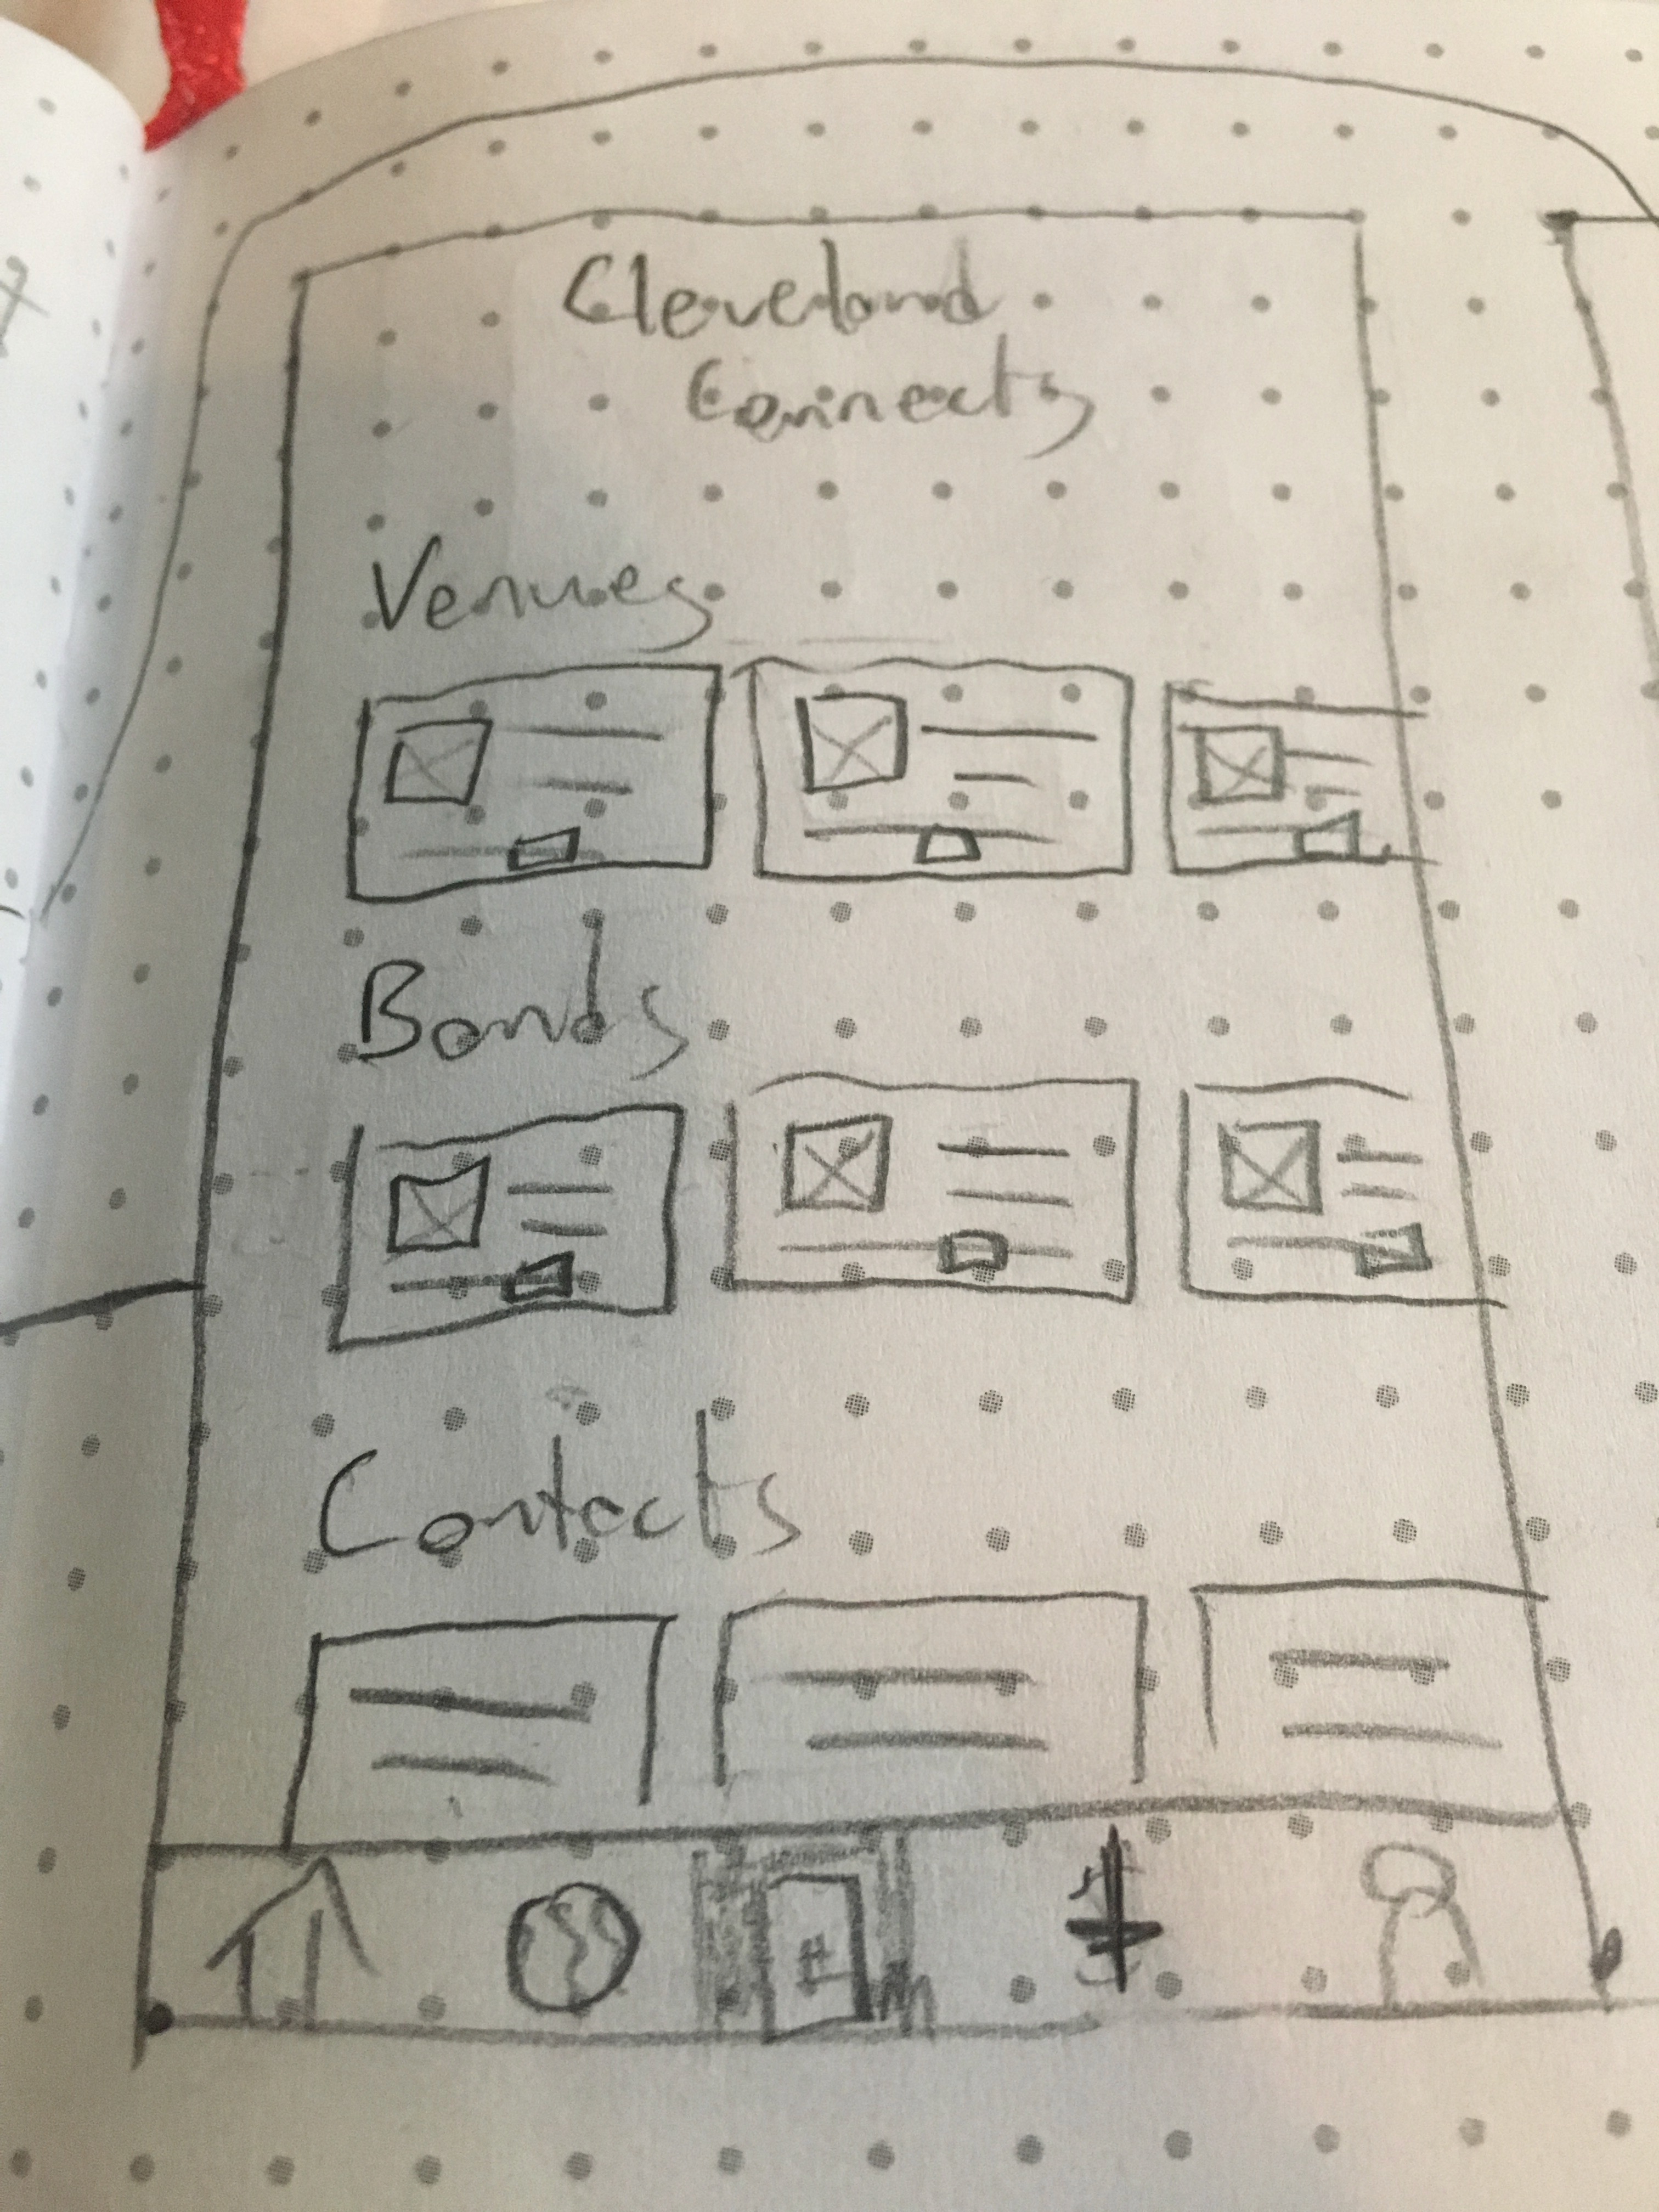 Cleveland
Connects
Venues
Bands
Contacts